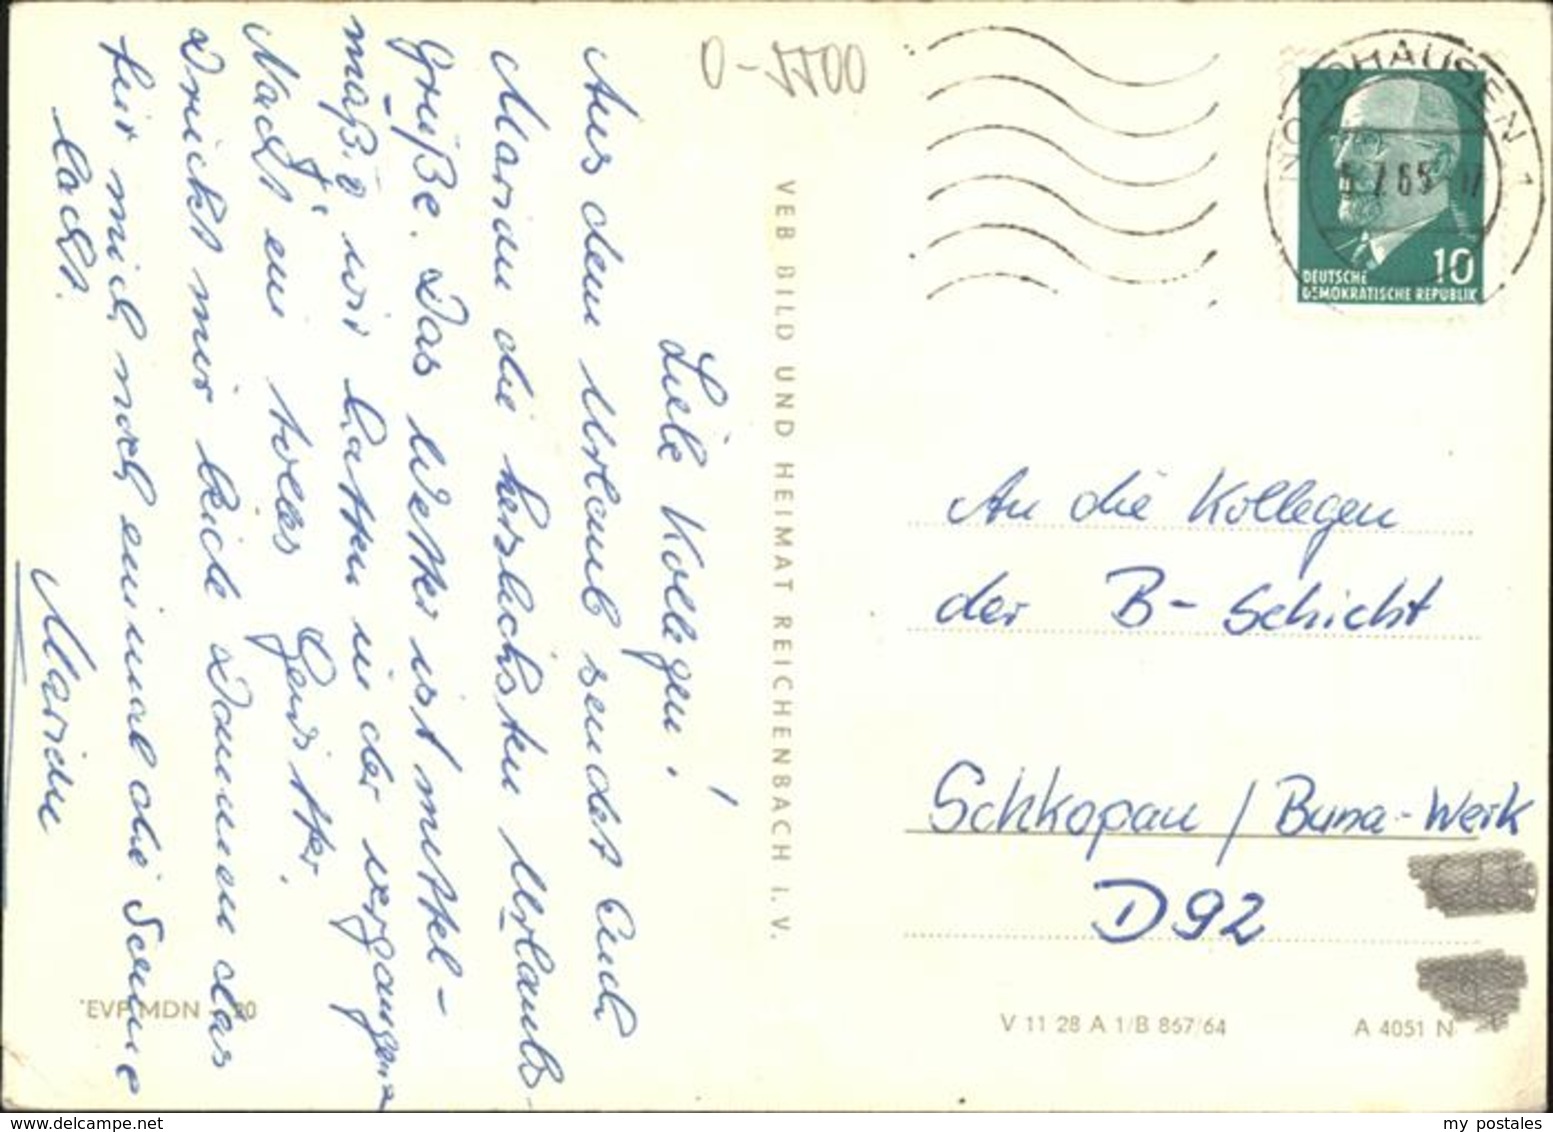 Liebe Kollegen!
Aus dem Urlaub sendet Euch
Marion die herzlichsten Urlaubs-
Grüße. Das Wetter ist mittel-
mäßig, wir hatten in der vergangenen
Nacht ein tolles Gewitter.
Drückt mir beide Daumen das
für mich noch einmal die Sonne
lacht.
Marion
EVP MDN
VEB BILD UND HEIMAT REICHENBACH I. V.
NORDHAUSEN 1
5.7.65-17
10
DEUTSCHE
DEMOKRATISCHE REPUBLIK
An die Kollegen
der B-Schicht
Schkopau / Buna-Werk
D92
V 11 28 A 1/B 867/64
A 4051 N
my postales